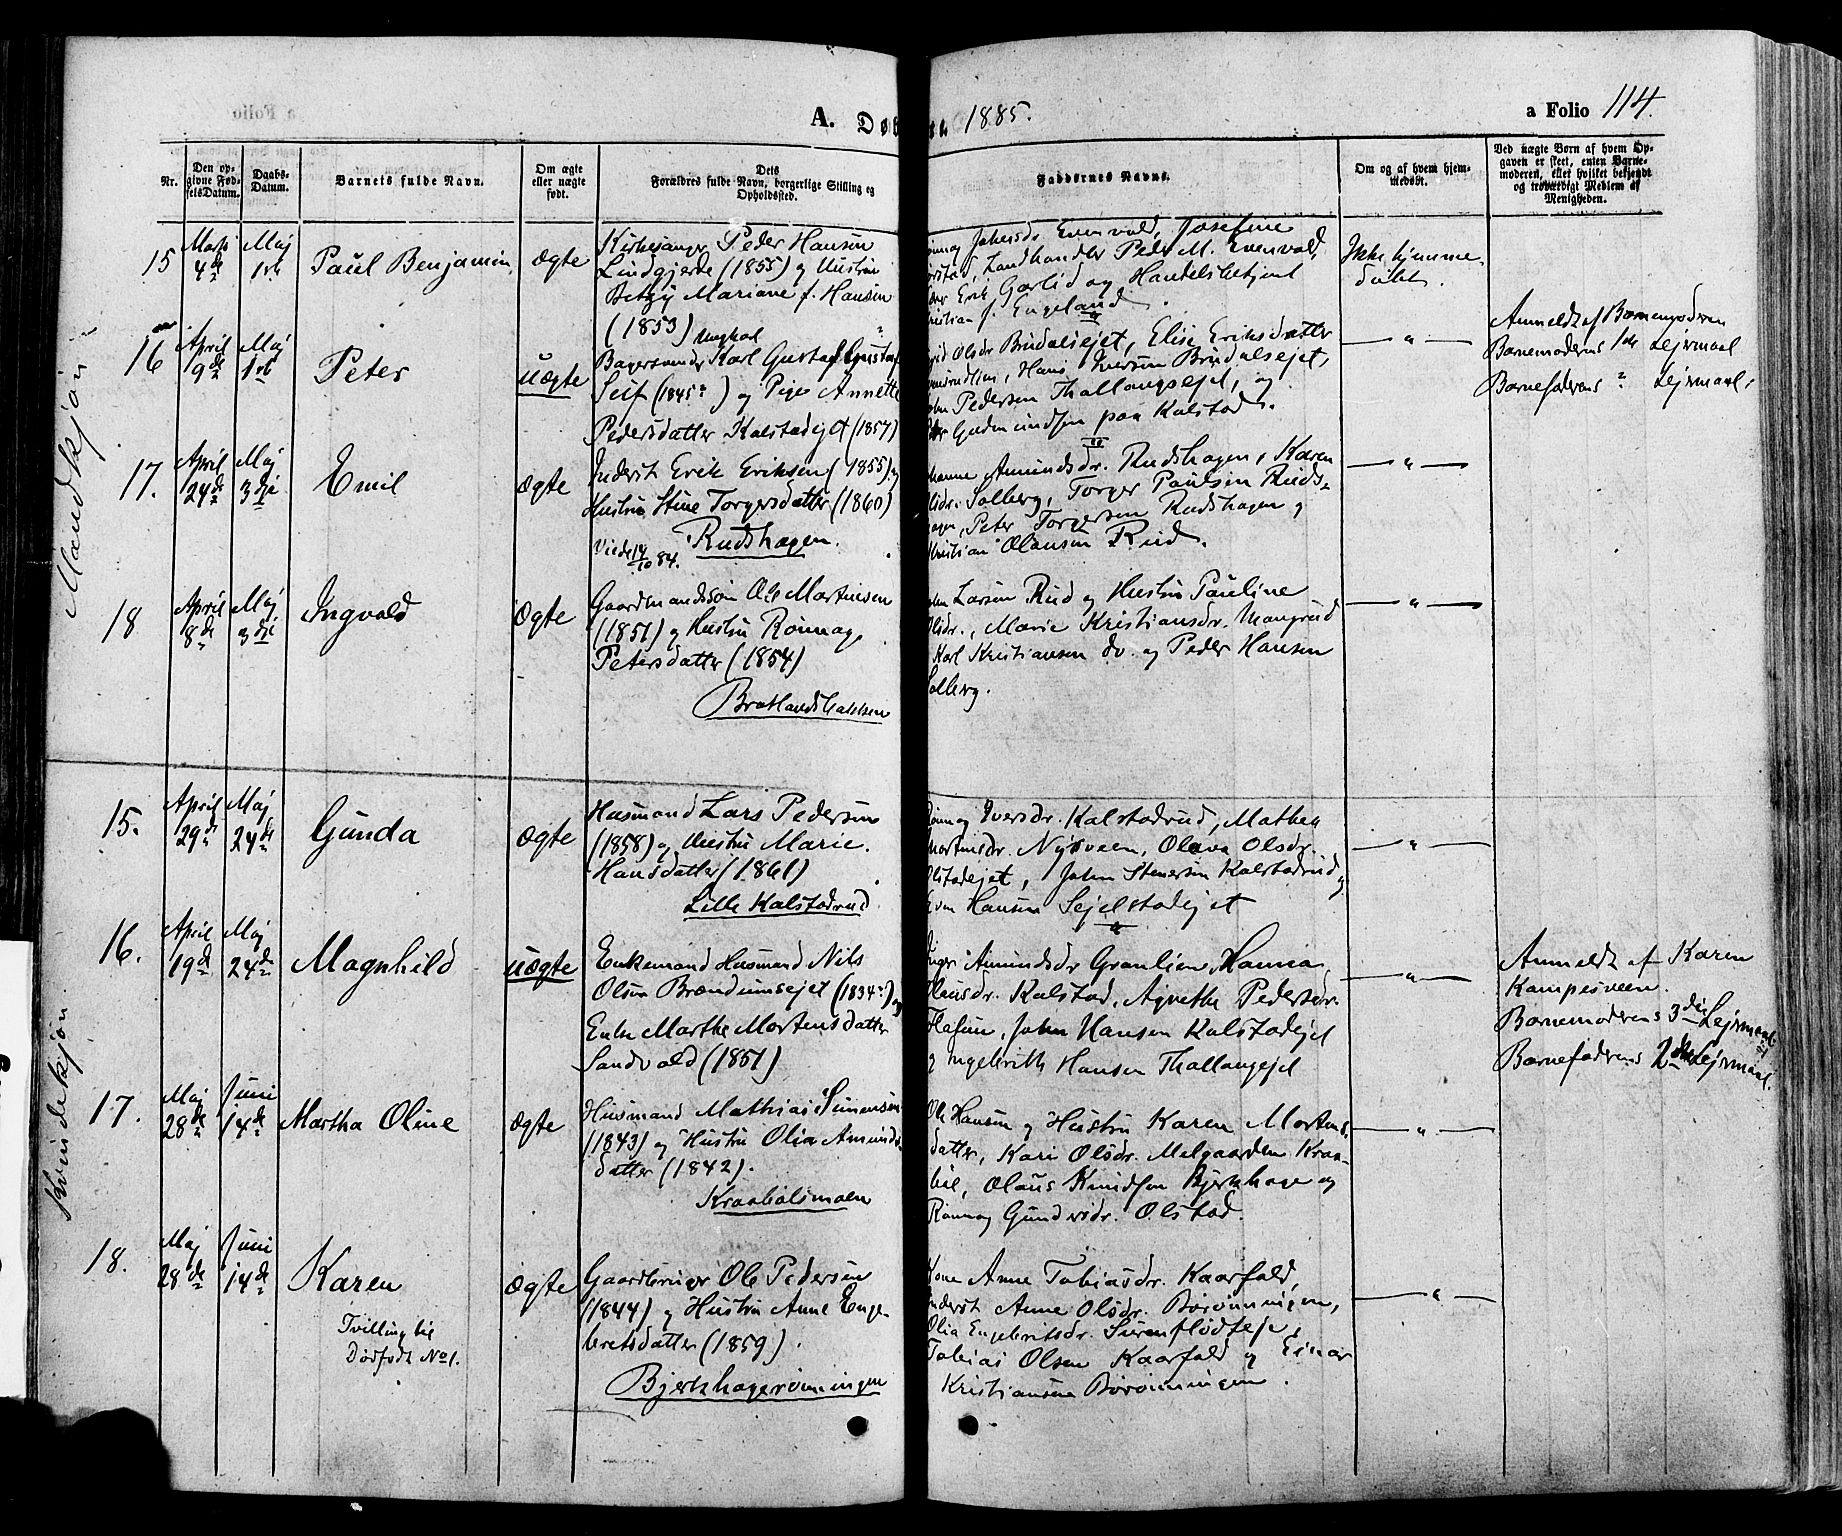 A. Døb
1885.
a Folio 114.
Nr.
Den op-
givne Fød-
selsDatum.
Daabs-
Datum.
Barnets fulde Navn.
Om ægte
eller uægte
født.
Dets
Forældres fulde Navn, borgerlige Stilling og
Opholdssted.
Faddernes Navne.
Om og af hvem hjem-
medøbt.
Ved uægte Børn af hvem Op-
gaven er skeet, enten Barne-
moderen, eller hvilket bekjendt
og troværdigt Medlem af
Menigheden.
Mandkjøn
15
Marts
4de
Maj
1ste
Paul Benjamin
ægte
Kirkesanger Peder Hansen
Lindgjerde (1855) og Hustru
Betzy Mariane f. Hansen
(1853)
Evenvold, Josefine
Landhandler Peder M. Evenvold,
Erik Garlid og Handelsbetjent
Engeland
Ikke hjemme-
døbt.
16
April
9de
Maj
1ste
Peter
uægte
Ungkarl
Bagersvend Karl Gustaf Gustaf
(1845?) og Pige Annette
Pedersdatter Kalstadejet (1857)
Olsdr Brudalsejet, Elise Eriksdatter
Hans Iversen Brudalsejet,
Pedersen Thallangsejet, og
Gudmundsen paa Kalstad.
— " —
Anmeldt af Barnemoderen
Barnemoderens 1ste Lejermaal
Barnefaderens ? Lejermaal
17.
April
24de
Maj
3die
Emil
ægte
Inderst Erik Eriksen (1855) og
Hustru Stine Torgersdatter (1860)
Rudshagen.
Viede 14/10 84.
Amundsdr. Rudshagen, Karen
Solberg, Torger Paulsen Ruds-
hagen, Peter Torgersen Rudshagen og
Kristian Olausen Rud.
— " —
18
April
8de
Maj
3die
Ingvald
ægte
Gaardmandssøn Ole Martinsen
(1851) og Hustru Rønnaug
Petersdatter (1854)
Brotlandsbakken
Larsen Rud og Hustru Pauline
Olsdr., Marie Kristiansdr. Mangrud
Karl Kristiansen do. og Peder Hansen
Solberg.
— " —
Kvindekjøn.
15.
April
29de
Maj
24de
Gunda
ægte
Husmand Lars Pedersen
(1858) og Hustru Marie
Hansdatter (1861)
Lille Kalstadrud
Iversdr. Kalstadrud, Mathea
Martinsdr. Nysveen, Olava Olsdr.
Olstadejet, John Stenersen Kalstadrud og
Hansen Sejelstadejet
— " —
16.
April
19de
Maj
24de
Magnhild
uægte
Enkemand Husmand Nils
Olsen Brændumsejet (1834?) og
Enke Marthe Mortensdatter
Sandvold (1851)
Amundsdr Granlien, Hanna
Klausdr. Kalstad, Agnethe Pedersdr.
John Hansen Kalstadejet
og Ingebrikt Hansen Thallangejet
— " —
Anmeldt af Karen
Kampesveen.
Barnemoderens 3die Lejermaal
Barnefaderens 2det Lejermaal.
17.
Maj
28de
Juni
14de
Martha Oline
ægte
Husmand Mathias Simensen
(1843) og Hustru Olia Amunds-
datter (1842).
Kraabølsmoen
Ole Hansen og Hustru Karen Mortens-
datter, Kari Olsdr. Melgaarden Kraa-
bøl, Olaus Knudsen Bjerkhage og
Rønnaug Gundersdr. Olstad.
— " —
18.
Maj
28de
Juni
14de
Karen
Tvilling til
Dødfødt No 1.
ægte
Gaardbruger Ole Pedersen
(1844) og Hustru Anne Enge-
bretsdatter (1859).
Bjerkhagerønningen
Kone Anne Tobiasdr. Kaarfald,
Inderst Anne Olsdr. Børønningen,
Olia Engebritsdr. Surenflødteje,
Tobias Olsen Kaarfald og Einar
Kristiansen Børønningen.
— " —